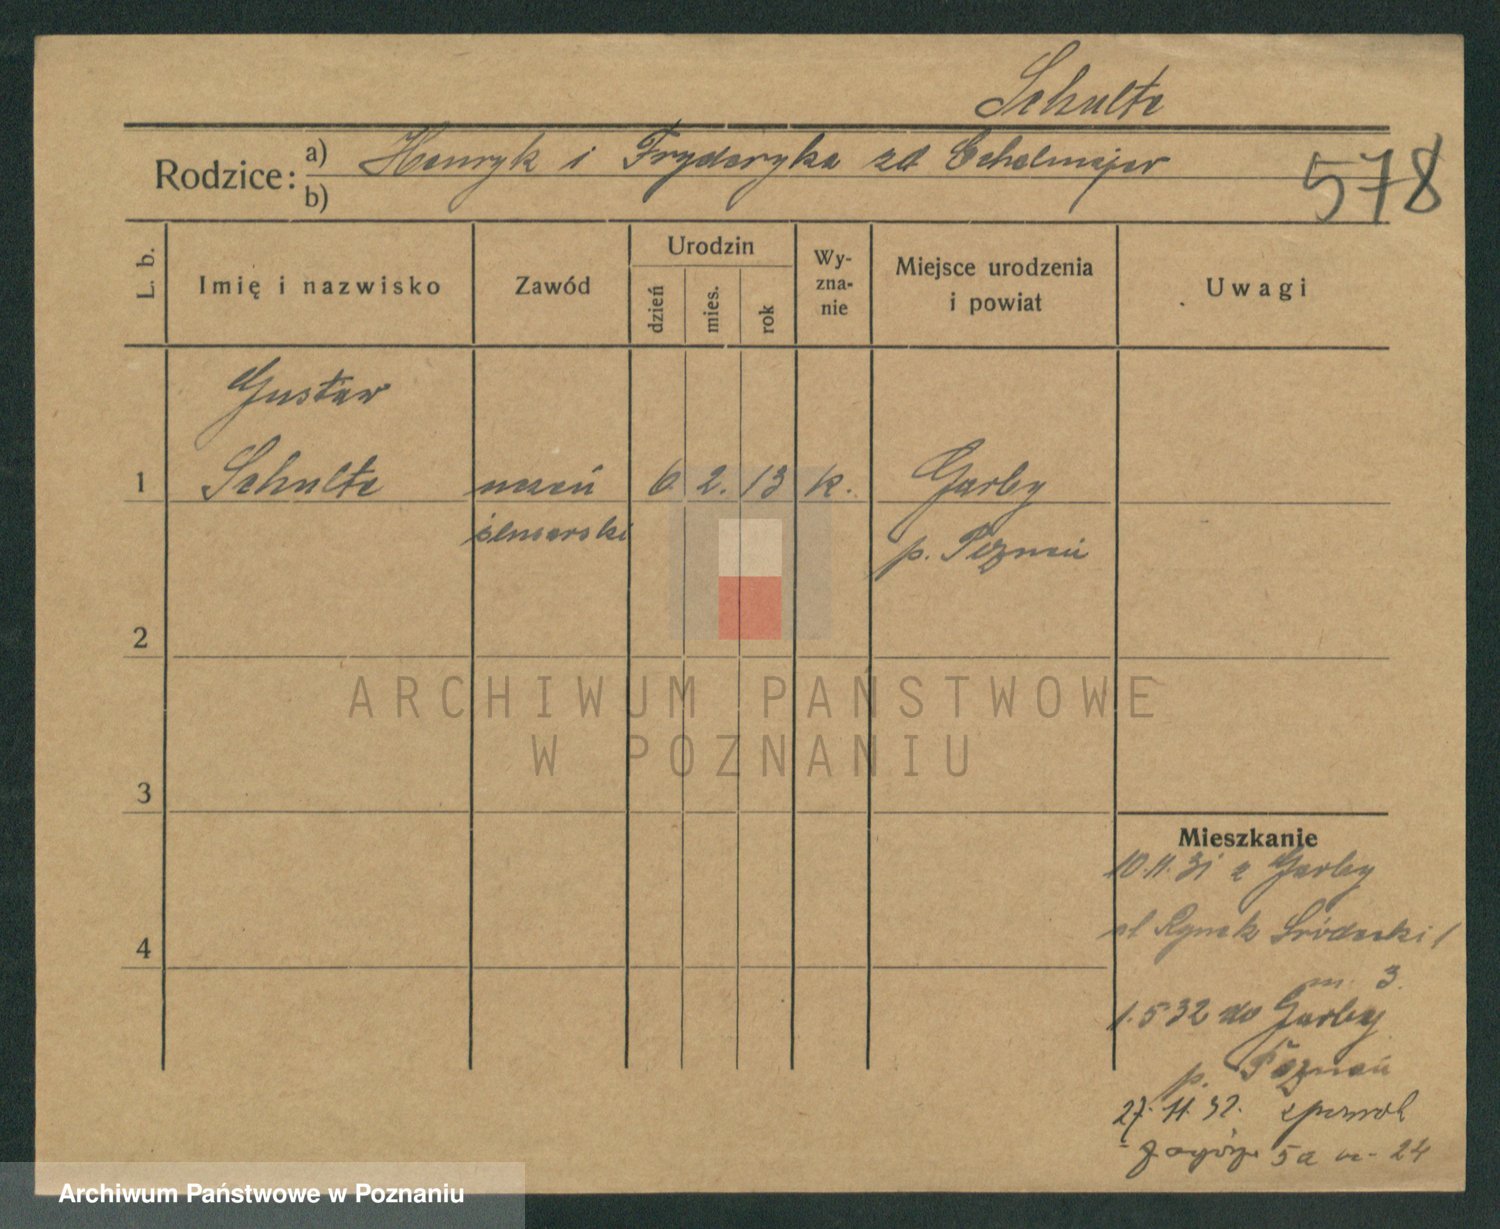 Schulte
Rodzice:
a) Henryk i Fryderyka zd
b)
578
L. b.
Imię i nazwisko
Zawód
Urodzin
dzień
mies.
rok
Wy-
zna-
nie
Miejsce urodzenia
i powiat
Uwagi
Gustaw
1 Schulte uczeń 6. 2. 13 k. Garby
ślusarski p. Poznań
2
3
4
Mieszkanie
10.11.31 z Garby
Rynek Śródecki 1
m. 3.
1.5.32 do Garby
p. Poznań
27.11.32.
Zagórze 5a m. 24
ARCHIWUM PAŃSTWOWE
W POZNANIU
Archiwum Państwowe w Poznaniu